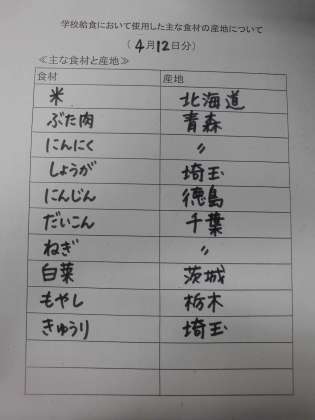 学校給食において使用した主な食材の産地について
(4月12日分)
≪主な食材と産地≫
食材 産地
米 北海道
ぶた肉 青森
にんにく 〃
しょうが 埼玉
にんじん 徳島
だいこん 千葉
ねぎ 〃
白菜 茨城
もやし 栃木
きゅうり 埼玉